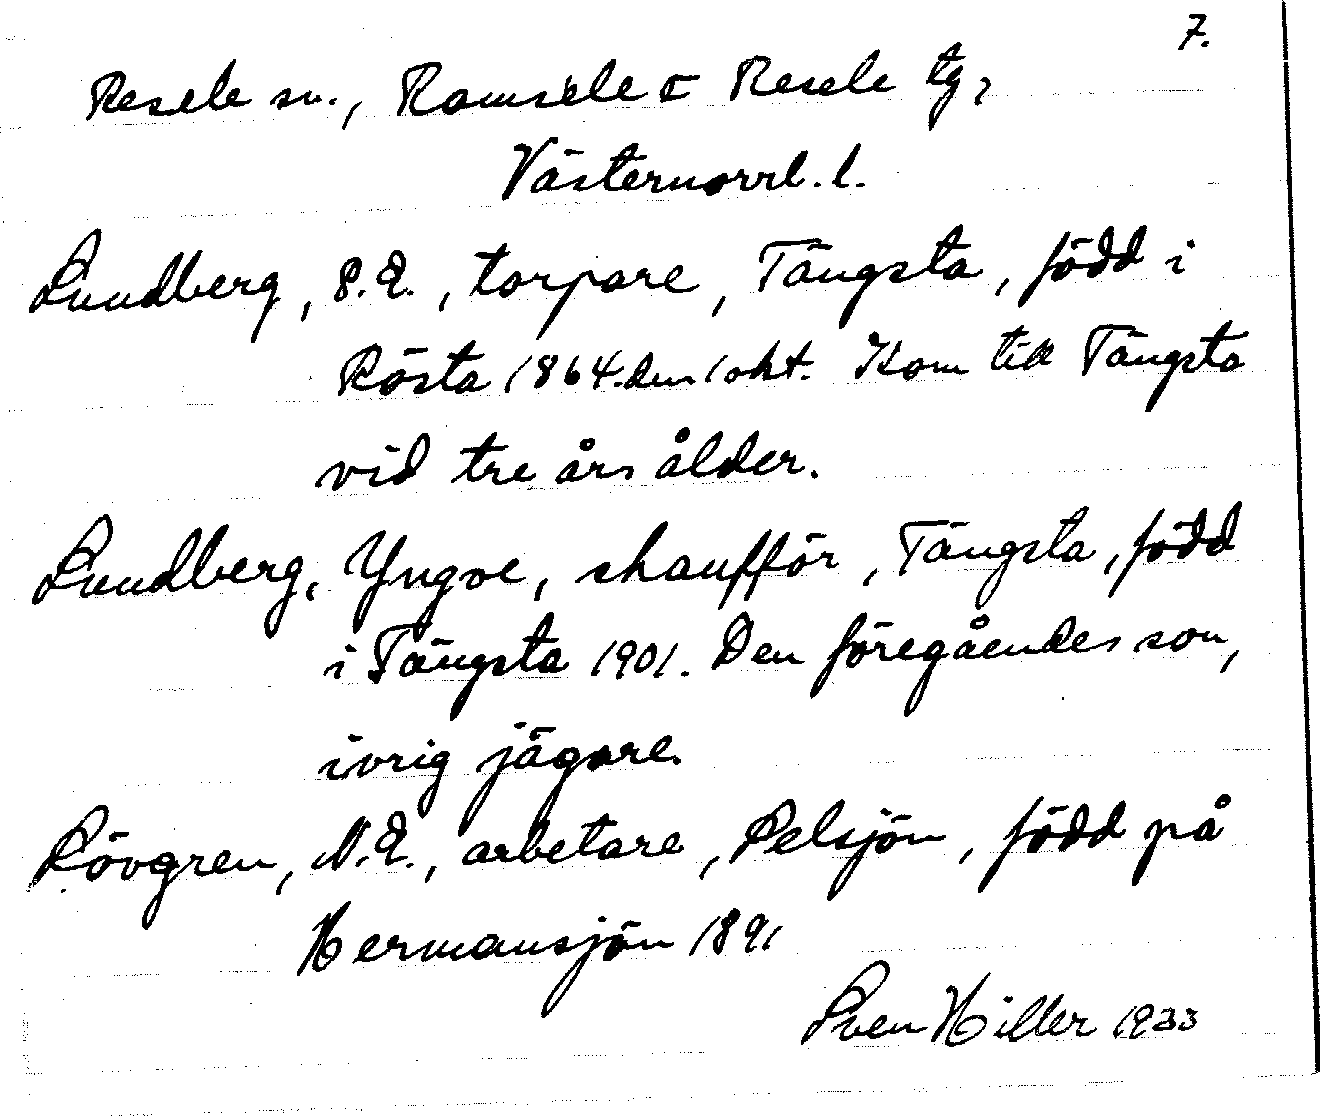 7.
Resele sn., Ramsele o Resele tg,
Västernorrl. l.
Lundberg, P.E., torpare, Tängsta, född i
Rösta 1864. den 1 okt. Kom till Tängsta
vid tre års ålder.
Lundberg, Yngve, chaufför, Tängsta, född
i Tängsta 1901. Den föregåendes son,
ivrig jägare.
Lövgren, N.E., arbetare, Pelsjön, född på
Hermansjön 1891
Sven Hiller 1933